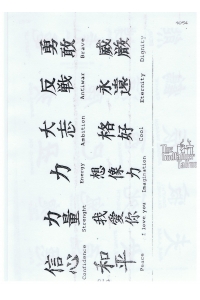 勇敢
Brave
威嚴
Dignity
反戦
Antiwar
永遠
Eternity
大志
Ambition
格好
Cool
力
Energy
想像力
Imagination
力量
Strenght
我愛你
I love you
信心
Confidence
和平
Peace